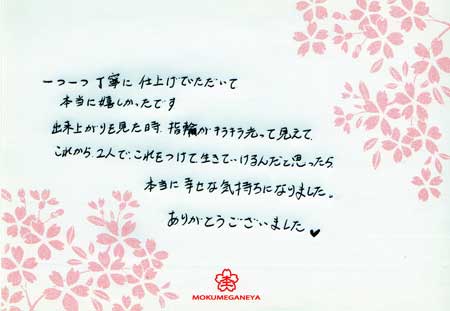 一つ一つ丁寧に仕上げていただいて
本当に嬉しかったです
出来上がりを見た時、指輪がキラキラ光って見えて、
これから、2人で、これをつけて生きていけるんだと思ったら
本当に幸せな気持ちになりました。
ありがとうございました♥
MOKUMEGANEYA